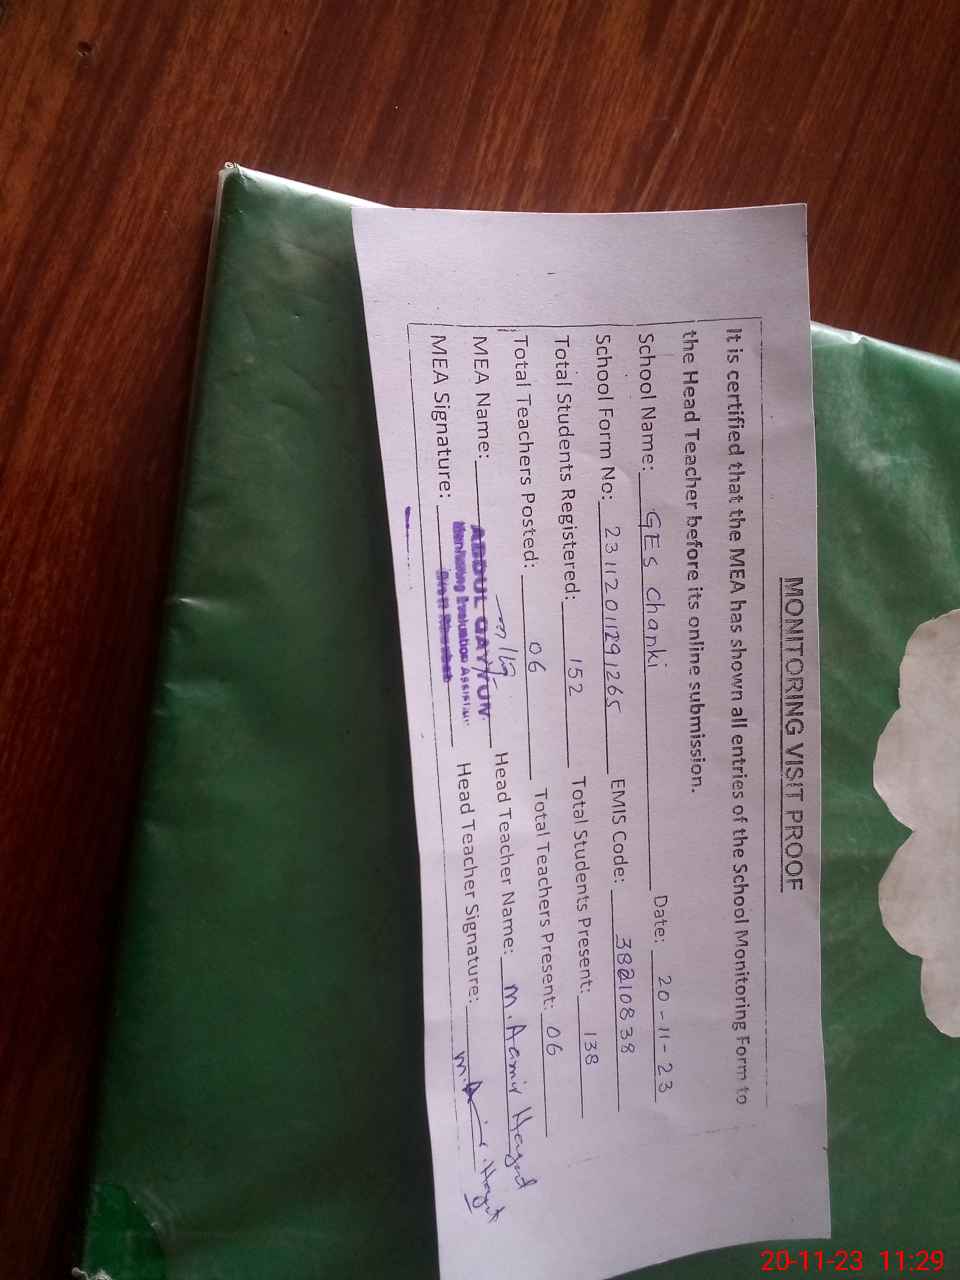 MONITORING VISIT PROOF
It is certified that the MEA has shown all entries of the School Monitoring Form to
the Head Teacher before its online submission.
School Name: GES Chanki Date: 20-11-23
School Form No: 23112011291265 EMIS Code: 38210838
Total Students Registered: 152 Total Students Present: 138
Total Teachers Posted: 06 Total Teachers Present: 06
MEA Name: ABDUL QAYYUM Head Teacher Name: M. Aamir Hayat
Monitoring Evaluation Assistant
MEA Signature: Head Teacher Signature: M. A Hayat
20-11-23 11:29